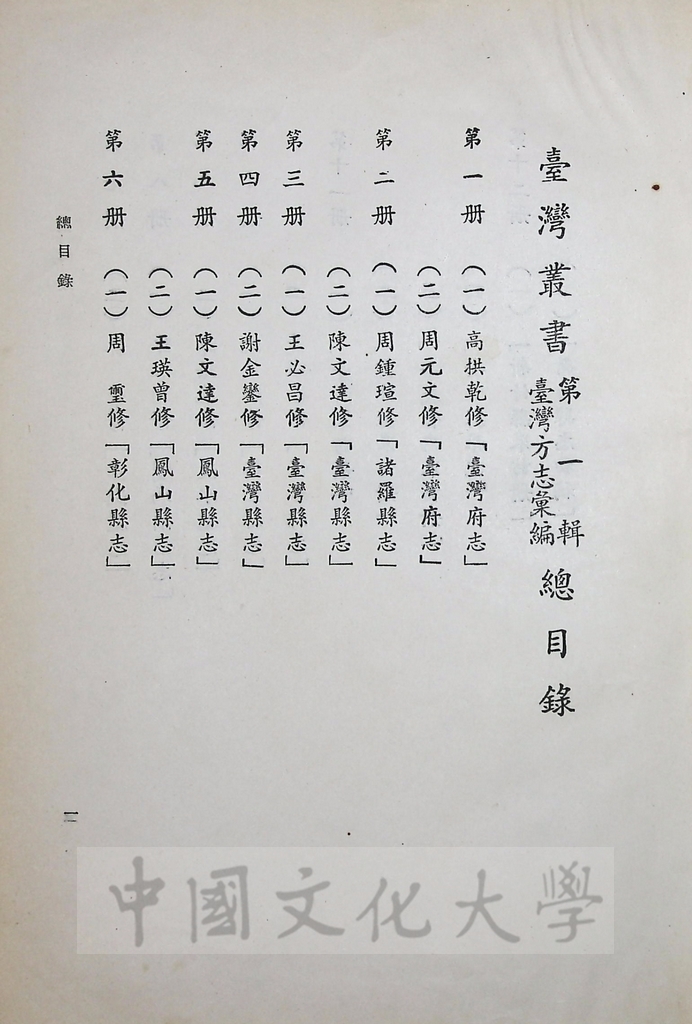 臺灣叢書第一輯臺灣方志彙編總目錄
第一册 (一)高拱乾修「臺灣府志」
(二)周元文修「臺灣府志」
第二册 (一)周鍾瑄修「諸羅縣志」
(二)陳文達修「臺灣縣志」
第三册 (一)王必昌修「臺灣縣志」
第四册 (二)謝金鑾修「臺灣縣志」
第五册 (一)陳文達修「鳳山縣志」
(二)王瑛曾修「鳳山縣志」
第六册 (一)周璽修「彰化縣志」
總目錄
一
中國文化大學